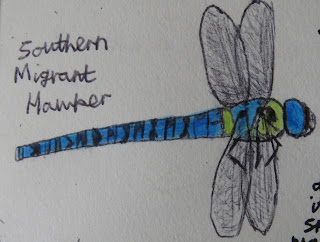 Southern
Migrant
Hawker